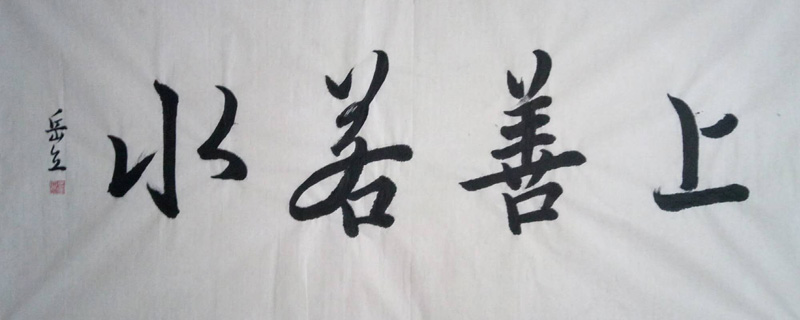 上善若水
岳立